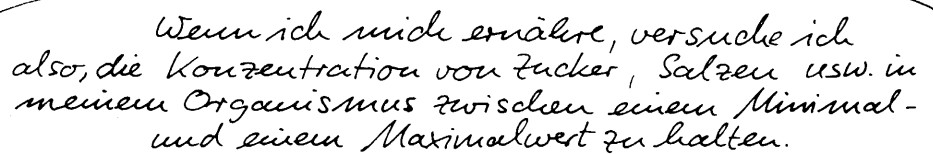 Wenn ich mich ernähre, versuche ich
also, die Konzentration von Zucker, Salzen usw. in
meinem Organismus zwischen einem Minimal-
und einem Maximalwert zu halten.